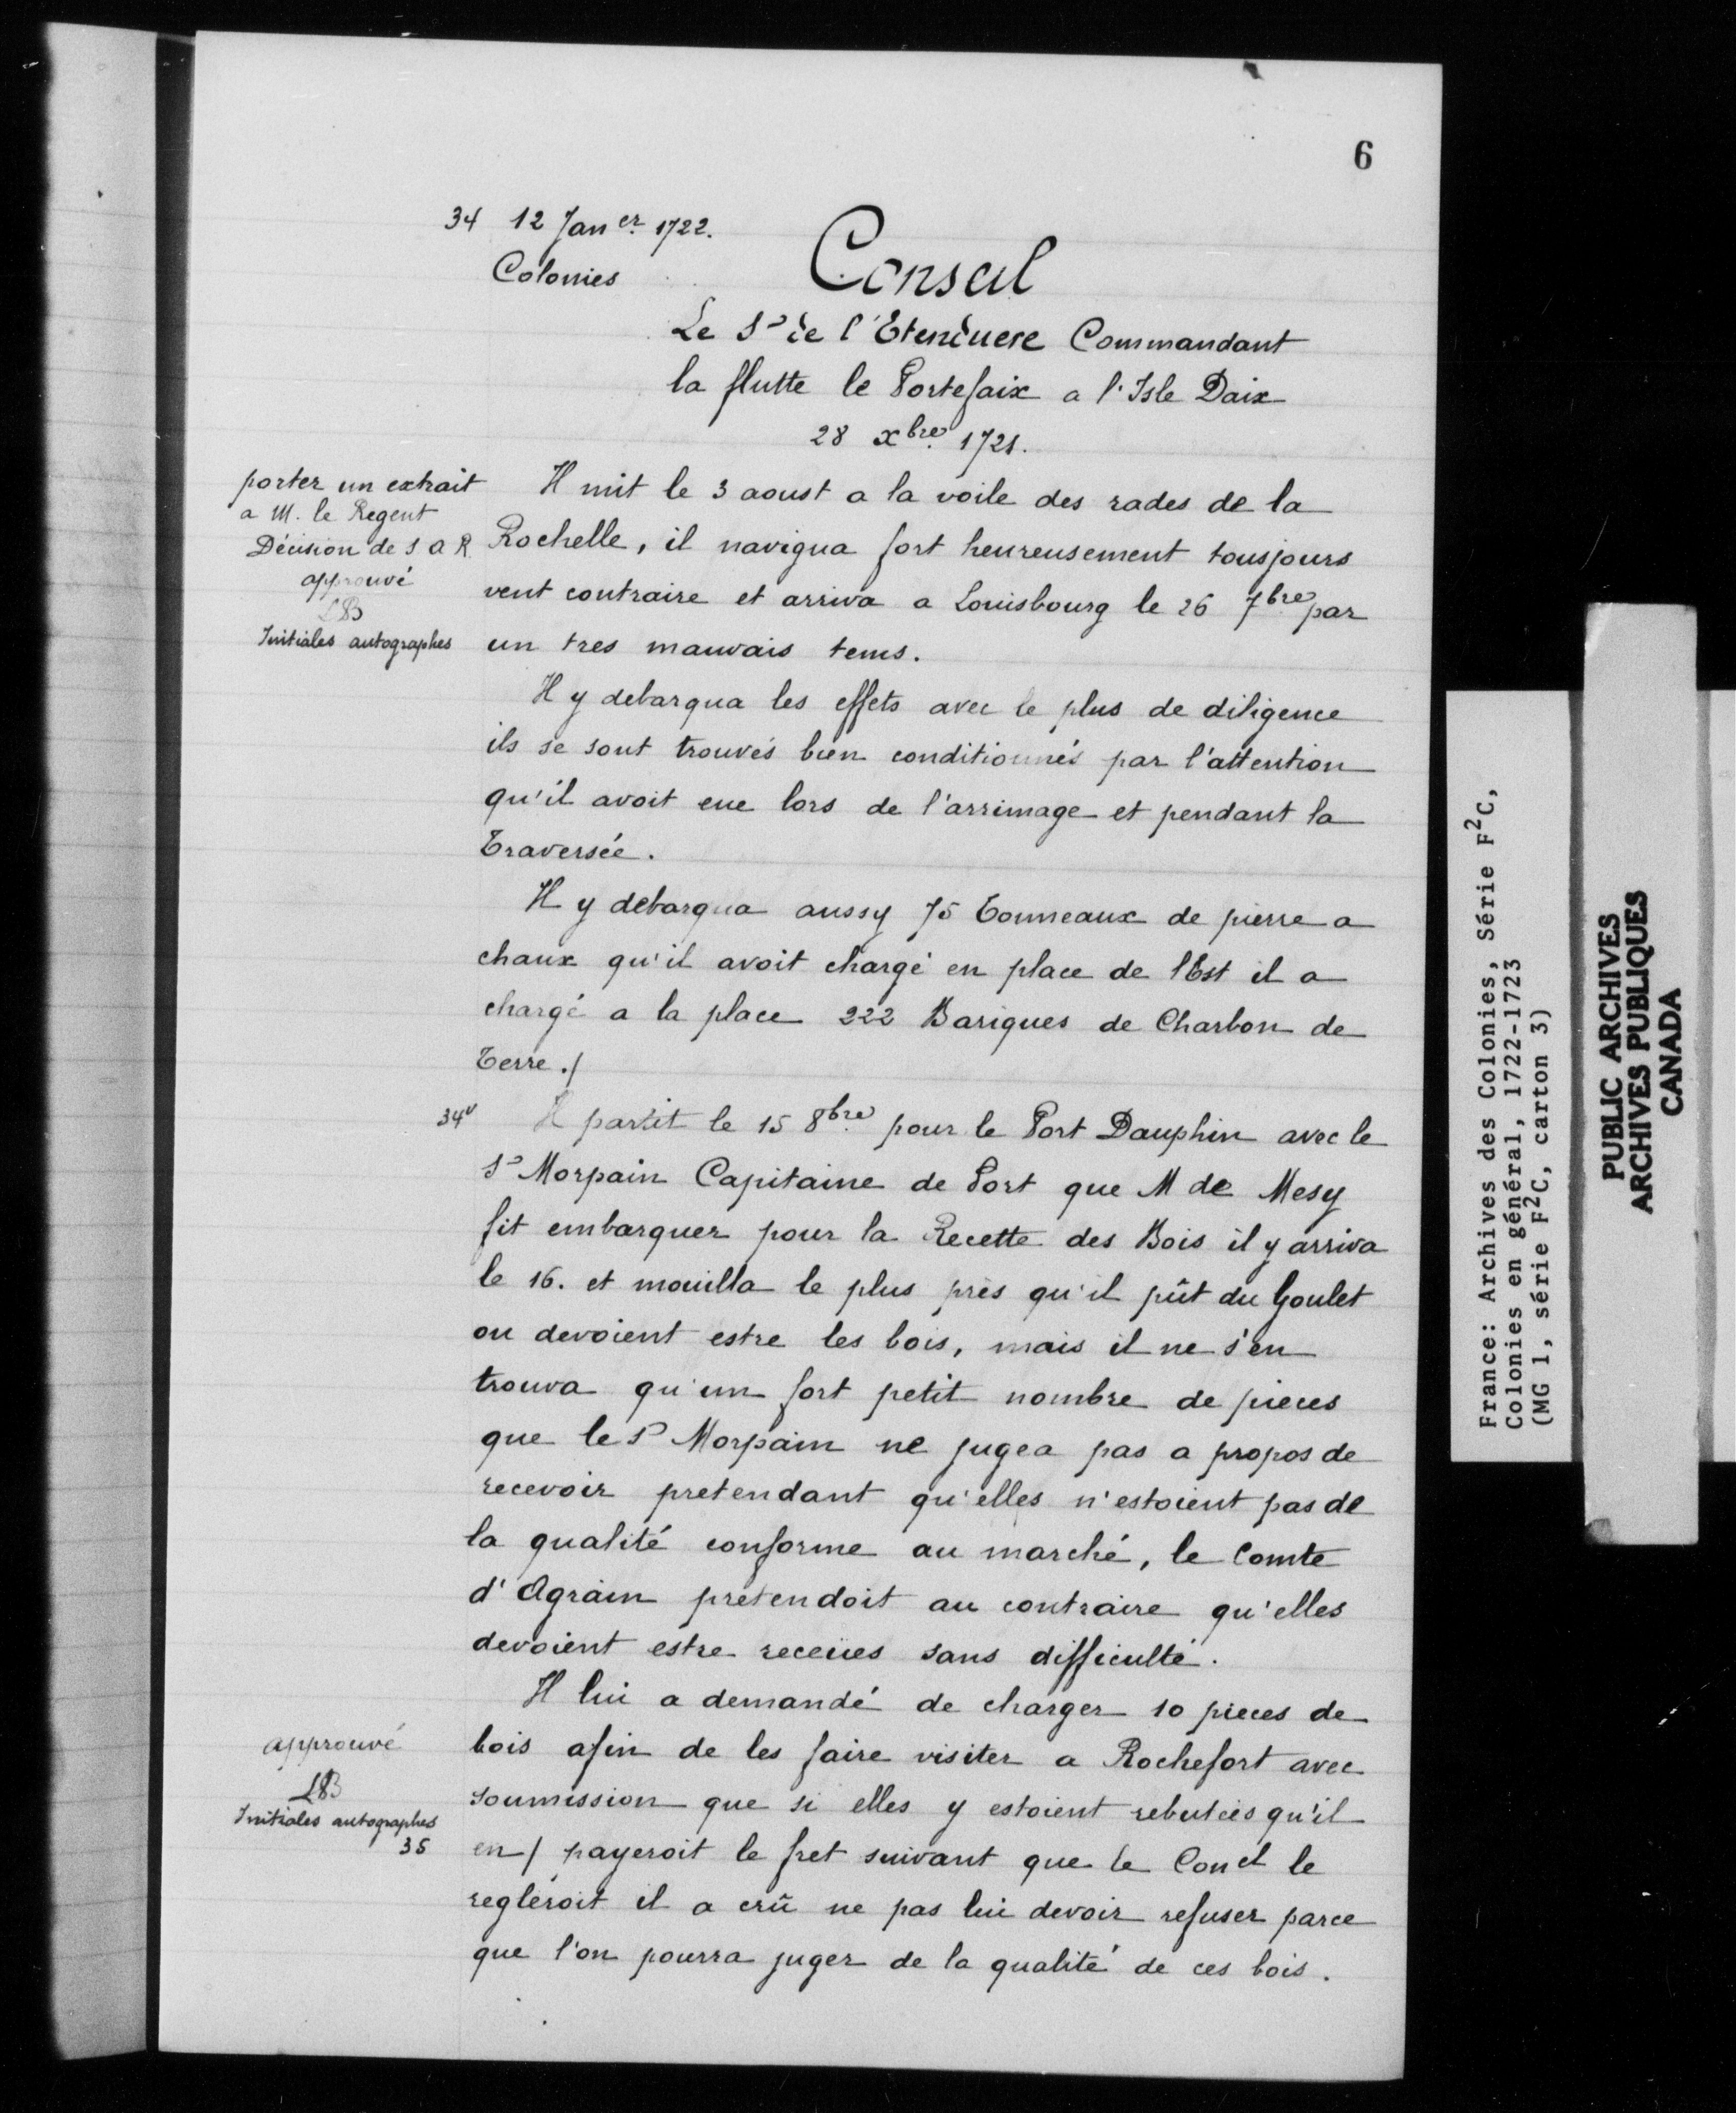 6
34 12 Jan er. 1722.
Colonies
Conseil
Le Sr de l'Etenduere Commandant
la flutte le Portefaix a l'Isle Daix
28 xbre 1721.
porter un extrait
a M. le Regent
Décision de S A R
approuvé
LB
Initiales autographes
Il mit le 3 aoust a la voile des rades de la
Rochelle, il navigua fort heureusement tousjours
vent contraire et arriva a Louisbourg le 26 7bre par
un tres mauvais tems.
Il y debarqua les effets avec le plus de diligence
ils se sont trouvés bien conditionnés par l'attention
qu'il avoit eue lors de l'arrimage et pendant la
Traversée.
Il y debarqua aussy 75 Tonneaux de pierre a
chaux qu'il avoit chargé en place de lEst il a
chargé a la place 222 Bariques de Charbon de
Terre./
34v Il partit le 15 8bre pour le Port Dauphin avec le
Sr Morpain Capitaine de Port que M de Mesy
fit embarquer pour la Recette des Bois il y arriva
le 16. et mouilla le plus près qu'il pût du Goulet
ou devoient estre les bois, mais il ne s'en
trouva qu'un fort petit nombre de pieces
que le Sr Morpain ne jugea pas a propos de
recevoir pretendant qu'elles n'estoient pas de
la qualité conforme au marché, le Comte
d'Agrain prétendoit au contraire qu'elles
devoient estre receües sans difficulté.
Il lui a demandé de charger 10 pieces de
bois afin de les faire visiter a Rochefort avec
soumission que si elles y estoient rebutées qu'il
en / payeroit le fret suivant que le Conel le
regleroit il a crû ne pas lui devoir refuser parce
que l'on pourra juger de la qualité de ces bois.
approuvé
LB
Initiales autographes
35
France: Archives des Colonies, Série F2C,
Colonies en général, 1722-1723
(MG 1, série F2C, carton 3)
PUBLIC ARCHIVES
ARCHIVES PUBLIQUES
CANADA